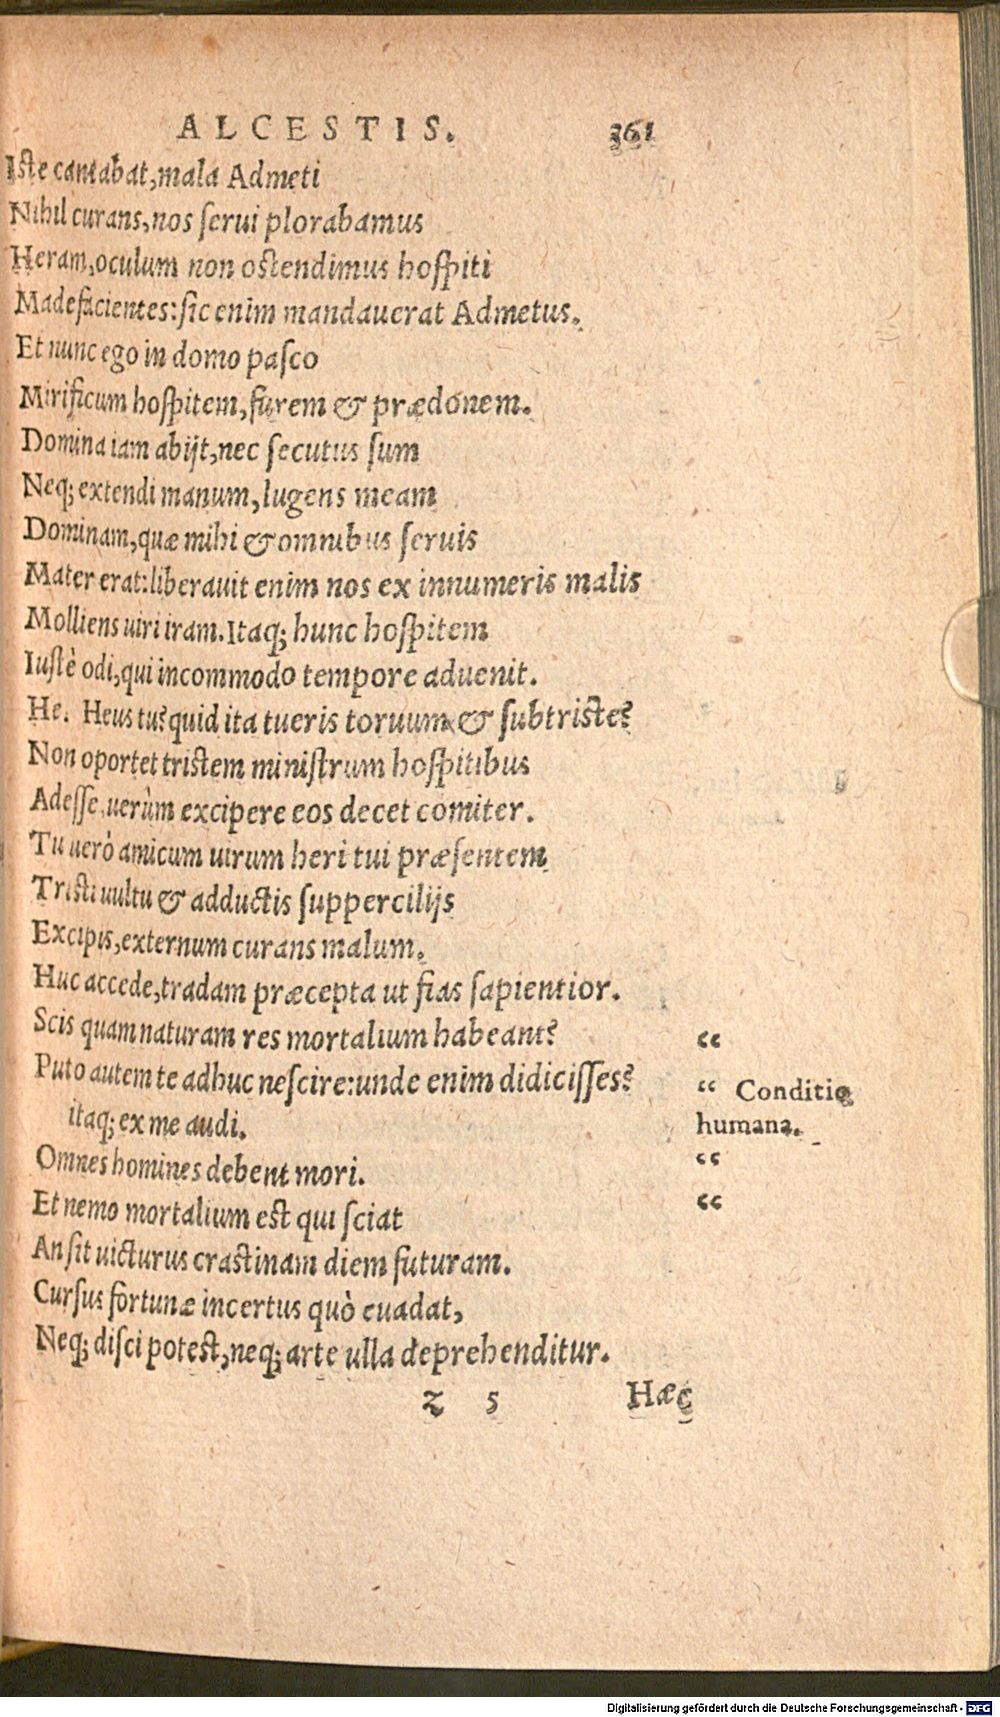 ALCESTIS. 361
Iste cantabat, mala Admeti
Nihil curans, nos serui plorabamus
Heram, oculum non ostendimus hospiti
Madefacientes: sic enim mandauerat Admetus.
Et nunc ego in domo pasco
Mirificum hospitem, furem & prædonem.
Domina iam abijt, nec secutus sum
Neq; extendi manum, lugens meam
Dominam, quæ mihi & omnibus seruis
Mater erat: liberauit enim nos ex innumeris malis
Molliens uiri iram. Itaq; hunc hospitem
Iustè odi, qui incommodo tempore aduenit.
He. Heus tu? quid ita tueris toruum & subtriste?
Non oportet tristem ministrum hospitibus
Adesse, uerùm excipere eos decet comiter.
Tu uerò amicum uirum heri tui præsentem
Tristi uultu & adductis supperciliјs
Excipis, externum curans malum.
Huc accede, tradam præcepta ut fias sapientior.
Scis quam naturam res mortalium habeant? “
Puto autem te adhuc nescire: unde enim didicisses? “ Conditio
itaq; ex me audi. humana.
Omnes homines debent mori. “
Et nemo mortalium est qui sciat “
An sit uicturus crastinam diem futuram.
Cursus fortunæ incertus quò euadat,
Neq; disci potest, neq; arte ulla deprehenditur.
z 5 Hæc
Digitalisierung gefördert durch die Deutsche Forschungsgemeinschaft - DFG